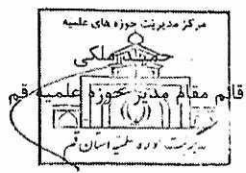 مرکز مدیریت حوزه های علمیه
حمید ملکی
قائم مقام مدیر حوزه علمیه قم
مدیریت حوزه علمیه استان قم